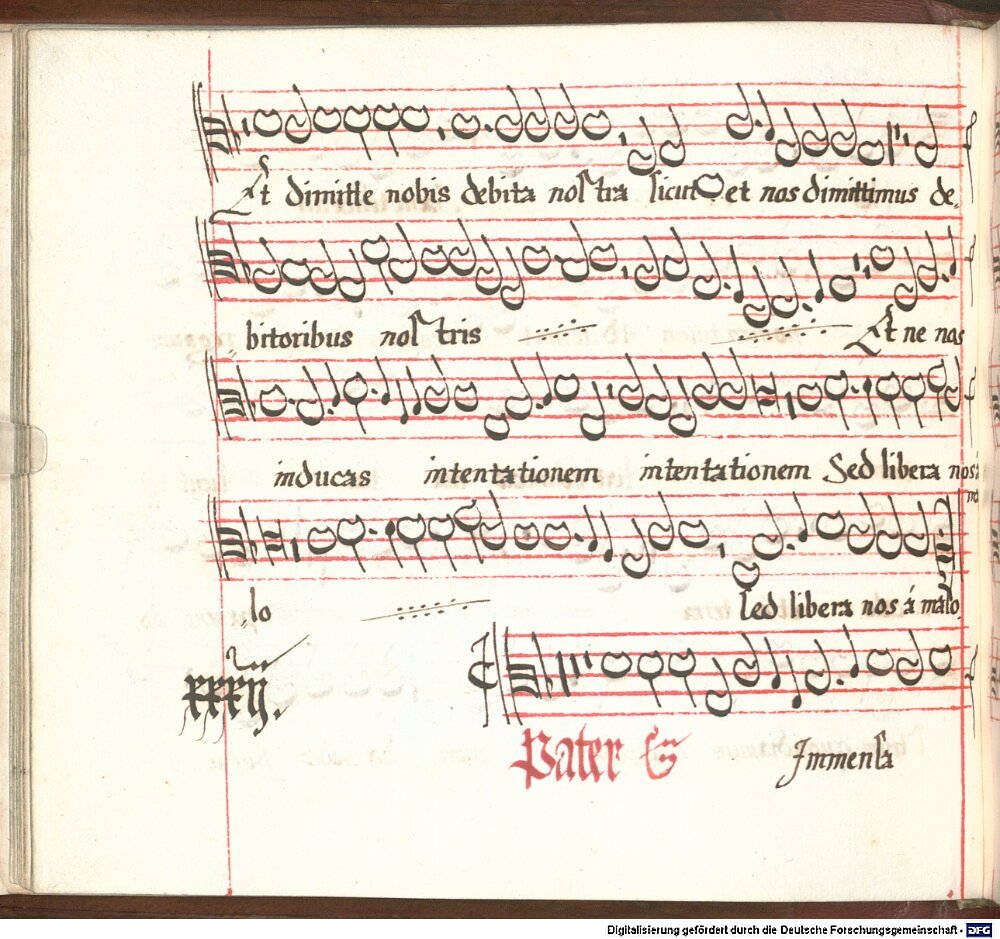 Et dimitte nobis debita noſtra ſicut et nos dimittimus de,
bitoribus noſtris Et ne nos
inducas intentationem intentationem Sed libera nos á
ma
lo ſed libera nos á malo.
xxxvij.
Pater
Immenſa
Digitalisierung gefördert durch die Deutsche Forschungsgemeinschaft - DFG